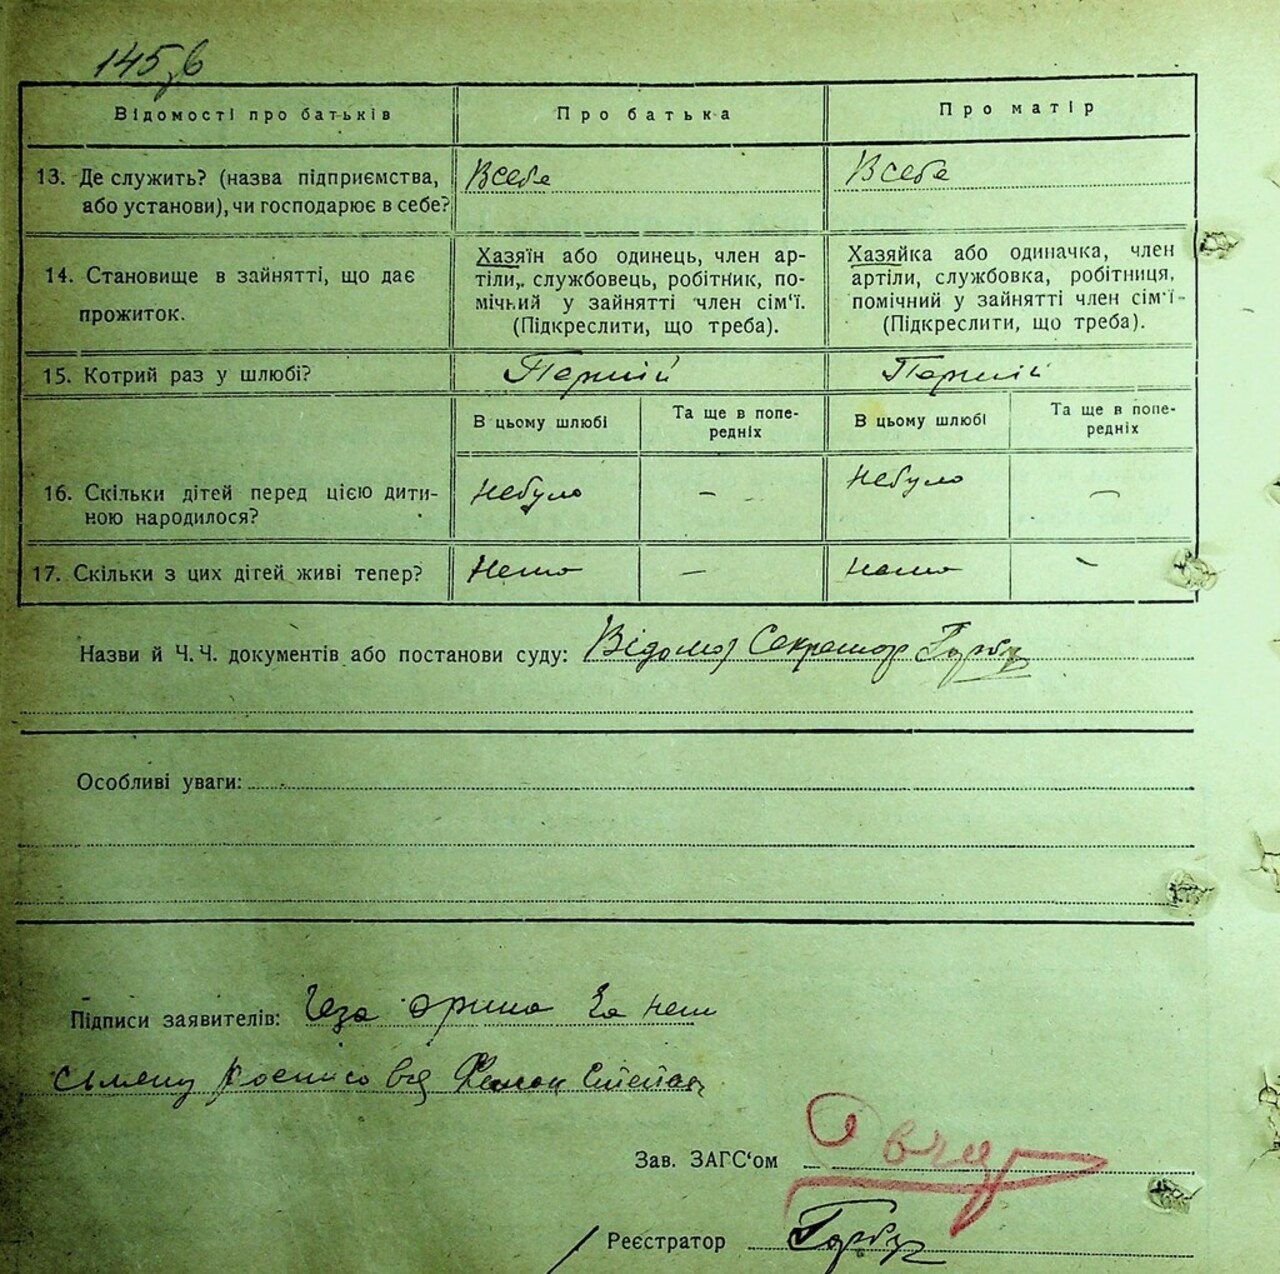 145,6
Відомості про батьків
Про батька
Про матір
13. Де служить? (назва підприємства, або установи), чи господарює в себе?
Всебе
Всебе
14. Становище в зайнятті, що дає прожиток.
Хазяїн або одинець, член ар-
тіли, службовець, робітник, по-
мічний у зайнятті член сім'ї.
(Підкреслити, що треба).
Хазяйка або одиначка, член
артіли, службовка, робітниця,
помічний у зайнятті член сім'ї-
(Підкреслити, що треба).
15. Котрий раз у шлюбі?
Перший
Перший
В цьому шлюбі
Та ще в попе-
редніх
В цьому шлюбі
Та ще в попе-
редніх
16. Скільки дітей перед цією дити-
ною народилося?
Небуло
–
Небуло
–
17. Скільки з цих дітей живі тепер?
Нема
–
нема
-
Назви й Ч.Ч. документів або постанови суду: Секретар Горбу
Особливі уваги:
Підписи заявителів: За
Степан
Зав. ЗАГС'ом
Реєстратор Горбу